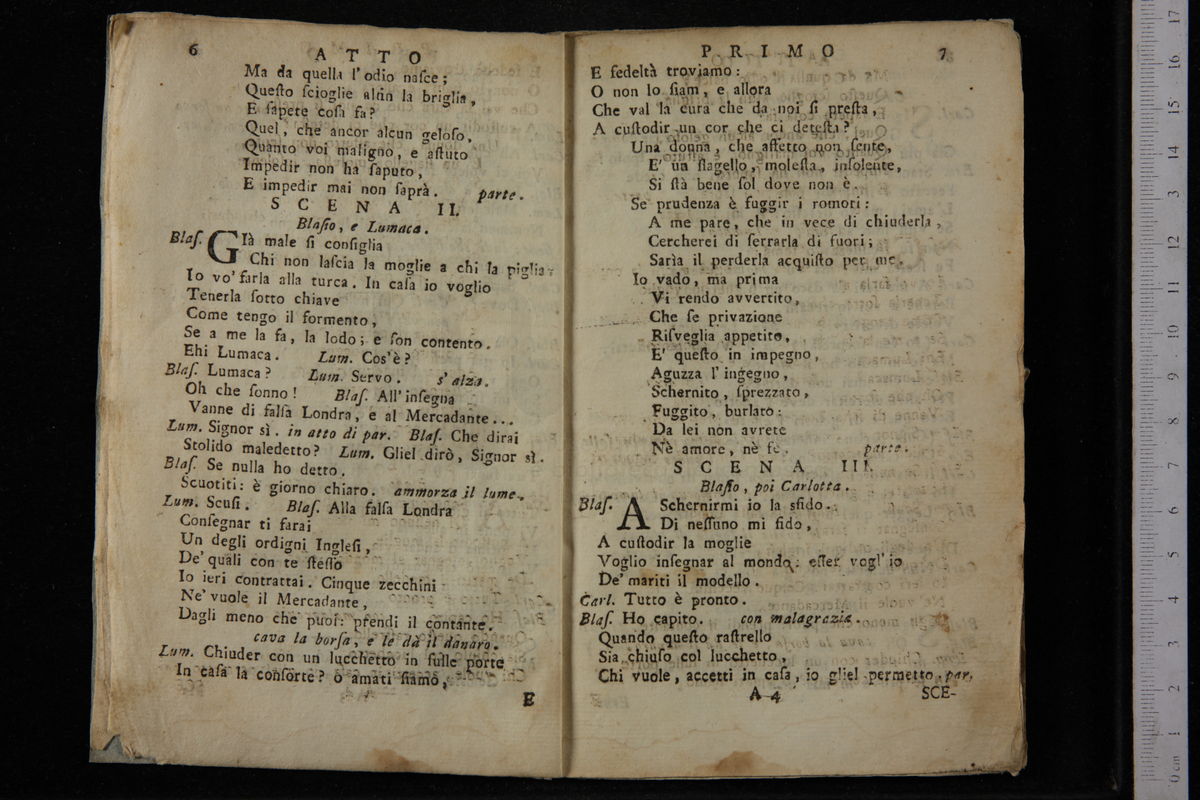 6 ATTO
Ma da quella l'odio naſce;
Queſto ſcioglie alfin la briglia,
E ſapete coſa fa?
Quel, che ancor alcun geloſo,
Quanto voi maligno, e aſtuto
Impedir non ha ſaputo,
E impedir mai non ſaprà. parte.
SCENA II.
Blaſio, e Lumaca.
Blaſ. GIà male ſi conſiglia
Chi non laſcia la moglie a chi la piglia.
Io vo' farla alla turca. In caſa io voglio
Tenerla ſotto chiave
Come tengo il formento,
Se a me la fa, la lodo; e ſon contento.
Ehi Lumaca. Lum. Cos'è?
Blaſ. Lumaca? Lum. Servo. s'alza.
Oh che ſonno! Blaſ. All'inſegna
Vanne di falſa Londra, e al Mercadante...
Lum. Signor sì. in atto di par. Blaſ. Che dirai
Stolido maledetto? Lum. Gliel dirò, Signor sì.
Blaſ. Se nulla ho detto.
Scuotiti: è giorno chiaro. ammorza il lume.
Lum. Scuſi. Blaſ. Alla falſa Londra
Conſegnar ti farai
Un degli ordigni Ingleſi,
De' quali con te ſteſſo
Io ieri contrattai. Cinque zecchini
Ne' vuole il Mercadante,
Dagli meno che puoi: prendi il contante.
cava la borſa, e le dà il danaro.
Lum. Chiuder con un lucchetto in ſulle porte
In caſa la conſorte? o amati ſiamo,
E
PRIMO 7
E fedeltà troviamo:
O non lo ſiam, e allora
Che val la cura che da noi ſi preſta,
A cuſtodir un cor che ci deteſta?
Una donna, che affetto non ſente,
E' un flagello, moleſta, inſolente,
Si ſtà bene ſol dove non è.
Se prudenza è fuggir i romori:
A me pare, che in vece di chiuderla,
Cercherei di ſerrarla di fuori;
Sarìa il perderla acquiſto per me.
Io vado, ma prima
Vi rendo avvertito,
Che ſe privazione
Riſveglia appetito,
E' queſto in impegno,
Aguzza l'ingegno,
Schernito, ſprezzato,
Fuggito, burlato:
Da lei non avrete
Nè amore, nè fe. parte.
SCENA III.
Blaſio, poi Carlotta.
Blaſ. A Schernirmi io la sfido.
Di neſſuno mi fido,
A cuſtodir la moglie
Voglio inſegnar al mondo: eſſer vogl'io
De' mariti il modello.
Carl. Tutto è pronto.
Blaſ. Ho capito. con malagrazia.
Quando queſto raſtrello
Sia chiuſo col lucchetto,
Chi vuole, accetti in caſa, io gliel permetto. par.
A 4 SCE-